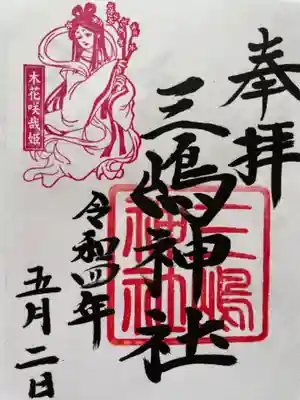 奉拝
三嶋神社
三嶋神社
令和四年
五月二日
木花咲哉姫